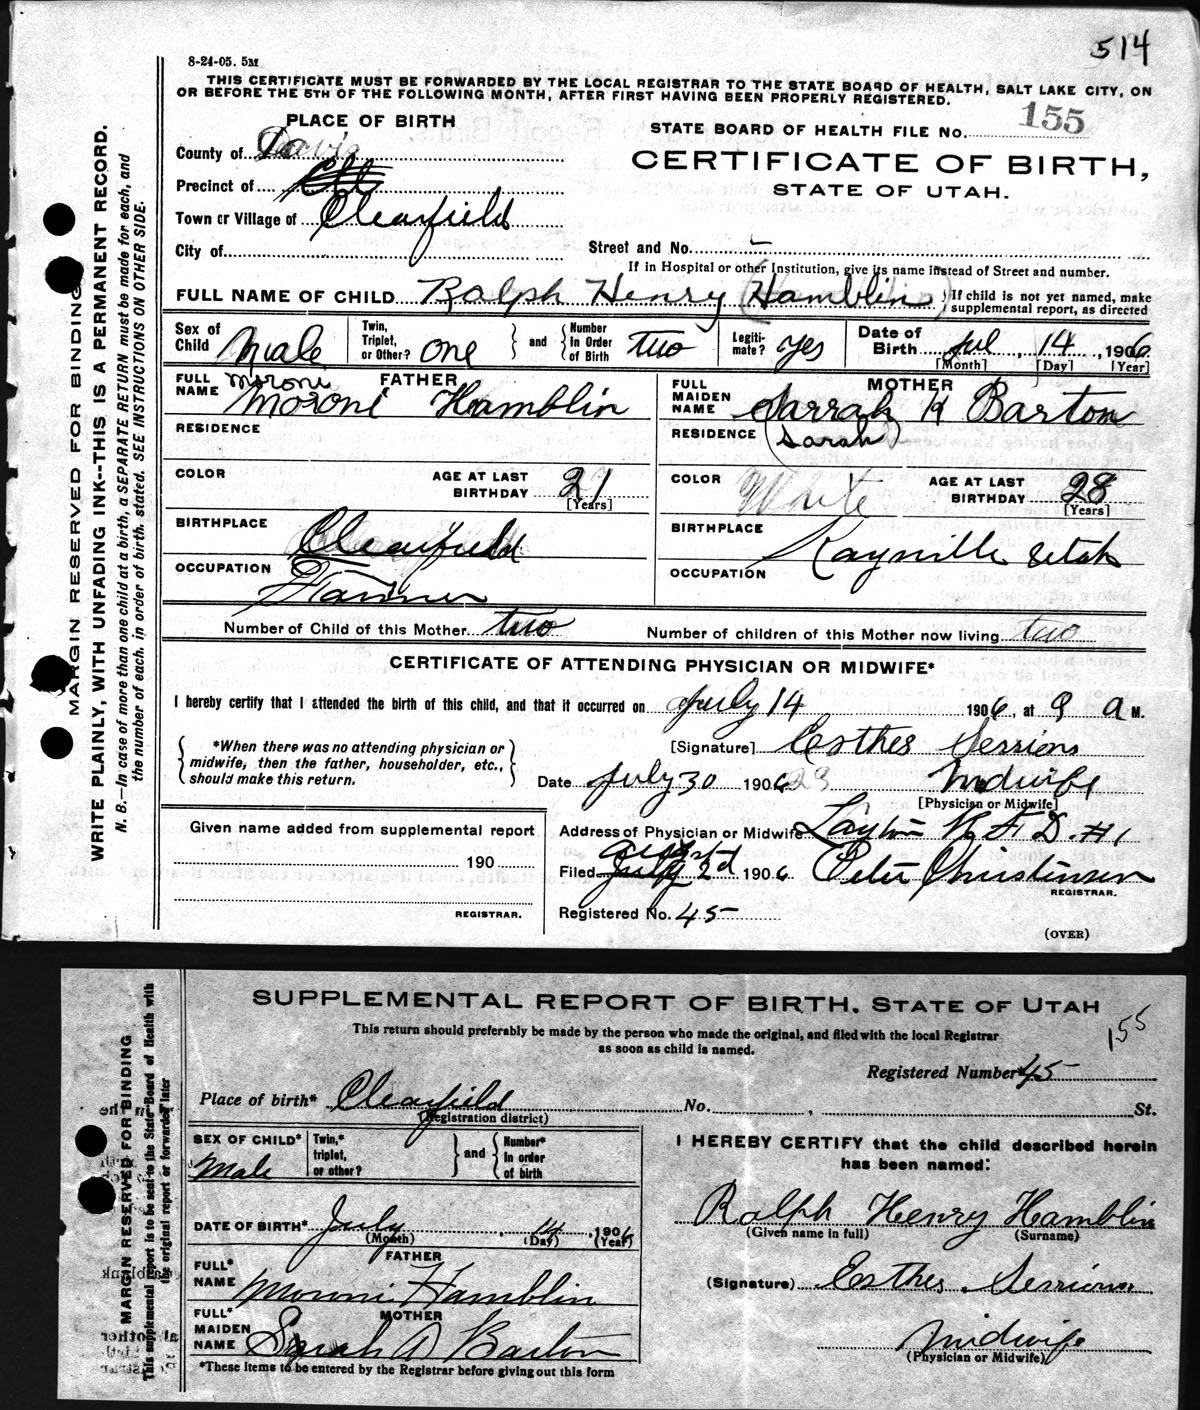 514
8-24-05. 5M
THIS CERTIFICATE MUST BE FORWARDED BY THE LOCAL REGISTRAR TO THE STATE BOARD OF HEALTH, SALT LAKE CITY, ON
OR BEFORE THE 5TH OF THE FOLLOWING MONTH, AFTER FIRST HAVING BEEN PROPERLY REGISTERED.
PLACE OF BIRTH
STATE BOARD OF HEALTH FILE No. 155
County of Davis
CERTIFICATE OF BIRTH,
STATE OF UTAH.
Precinct of
Town or Village of Clearfield
City of
Street and No. -
If in Hospital or other Institution, give its name instead of Street and number.
FULL NAME OF CHILD Ralph Henry (Hamblin) } If child is not yet named, make supplemental report, as directed
Sex of Child Male Twin, Triplet, or Other? one } and { Number In Order of Birth two Legiti-mate? yes Date of Birth Jul, 14, 1906
[Month] [Day] [Year]
FATHER
FULL NAME Moroni
Moroni Hamblin
RESIDENCE
COLOR
AGE AT LAST BIRTHDAY 21 [Years]
BIRTHPLACE Clearfield
OCCUPATION Farmer
MOTHER
FULL MAIDEN NAME Sarrah H Barton
RESIDENCE (Sarah)
COLOR White
AGE AT LAST BIRTHDAY 28 [Years]
BIRTHPLACE Kaysville Utah
OCCUPATION
Number of Child of this Mother two Number of children of this Mother now living two
CERTIFICATE OF ATTENDING PHYSICIAN OR MIDWIFE*
I hereby certify that I attended the birth of this child, and that it occurred on July 14 1906, at 9 a M.
{ *When there was no attending physician or midwife, then the father, householder, etc., should make this return. }
[Signature] Esther Sessions
Date July 30 1906 Midwife
[Physician or Midwife]
Given name added from supplemental report
190
REGISTRAR.
Address of Physician or Midwife Layton R F D. #1
Filed 2d 1906 Peter Christensen
REGISTRAR.
Registered No. 45
(OVER)
MARGIN RESERVED FOR BINDING
WRITE PLAINLY, WITH UNFADING INK--THIS IS A PERMANENT RECORD.
N. B.—In case of more than one child at a birth, a SEPARATE RETURN must be made for each, and
the number of each, in order of birth, stated. SEE INSTRUCTIONS ON OTHER SIDE.
SUPPLEMENTAL REPORT OF BIRTH. STATE OF UTAH
This return should preferably be made by the person who made the original, and filed with the local Registrar
as soon as child is named.
155
Registered Number* 45
Place of birth* Clearfield No. , St.
(Registration district)
SEX OF CHILD* Male Twin,* triplet, or other? } and { Number* in order of birth
I HEREBY CERTIFY that the child described herein
has been named:
DATE OF BIRTH* July, 14, 1906
(Month) (Day) (Year)
Ralph Henry Hamblin
(Given name in full) (Surname)
FATHER
FULL* NAME Moroni Hamblin
(Signature) Esther Sessions
MOTHER
FULL* MAIDEN NAME Sarah A Barton
Midwife
(Physician or Midwife)
*These items to be entered by the Registrar before giving out this form
MARGIN RESERVED FOR BINDING
This supplemental report is to be sent to the State Board of Health with
the original report or forwarded later